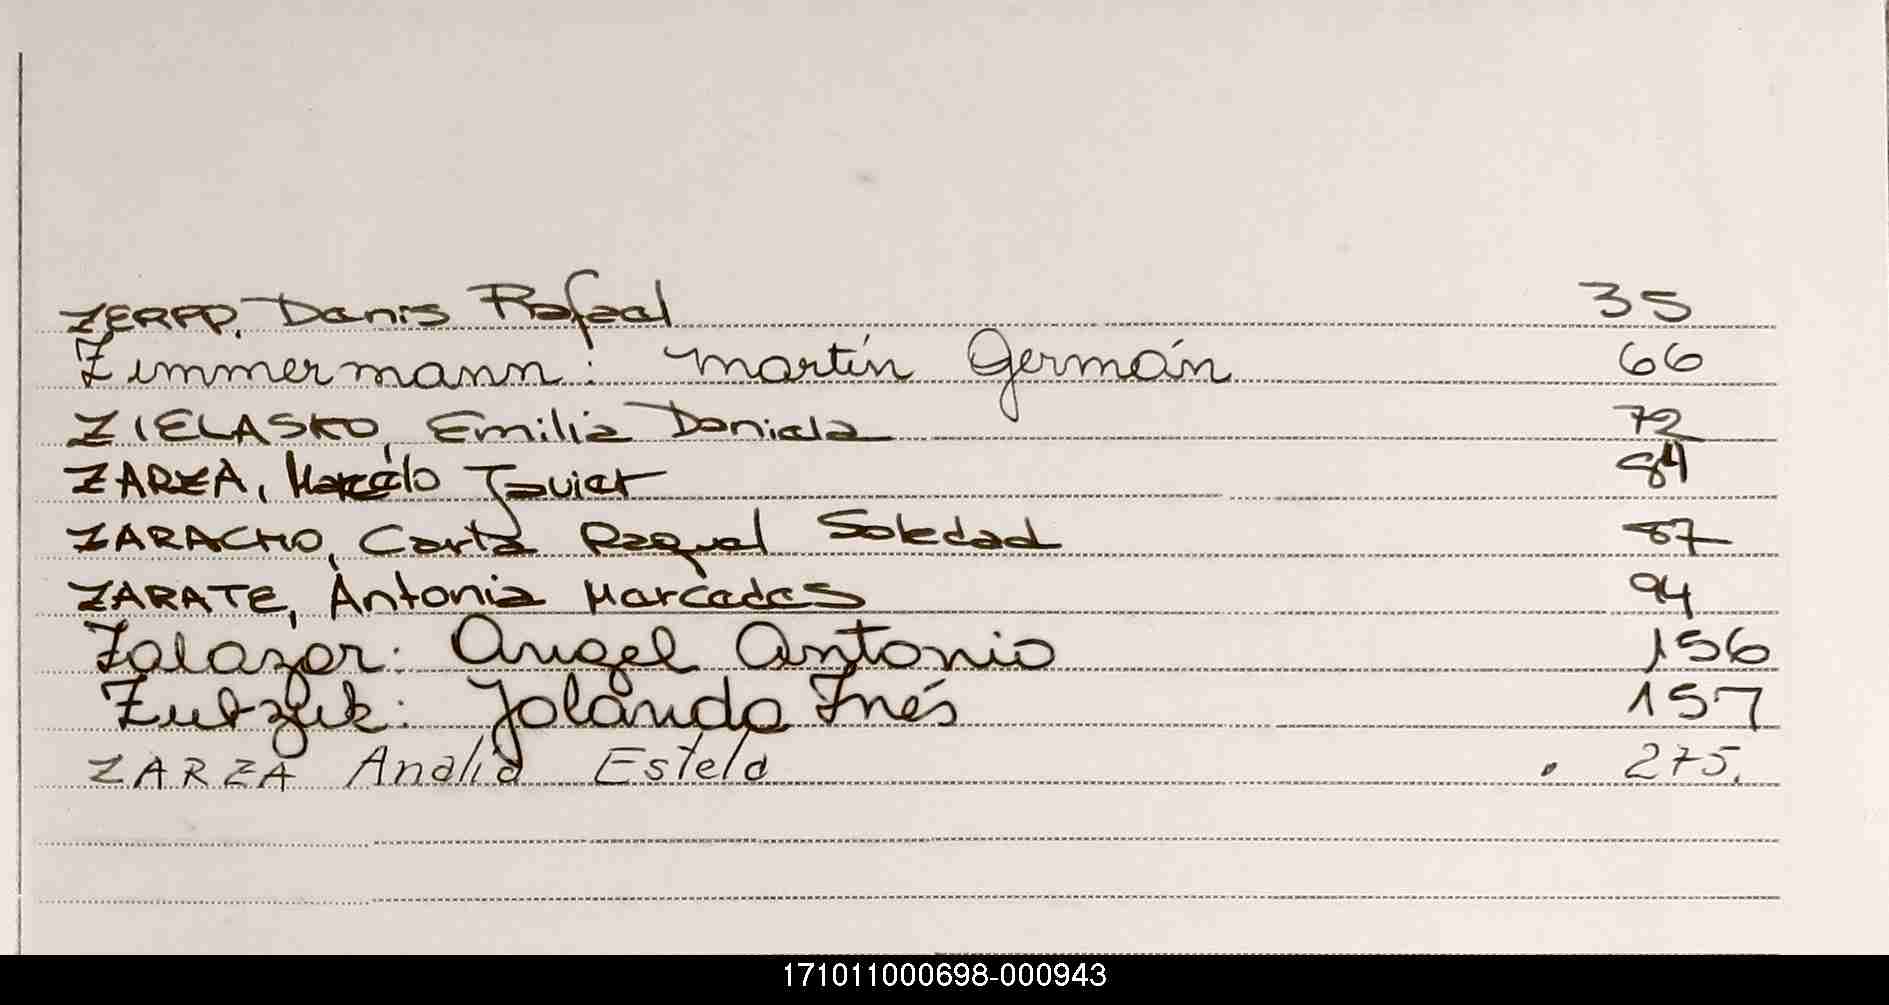 ZERPP, Denis Rafael 35
Zimmermann: Martín Germán 66
ZIELASKO, Emilia Daniela 72
ZARZA, Marcelo Javier 84
ZARACHO, Carla Raquel Soledad 87
ZARATE, Antonia Mercedes 94
Zalazar: Angel Antonio 156
Yolanda Inés 157
ZARZA Analia Estela . 275.
171011000698-000943